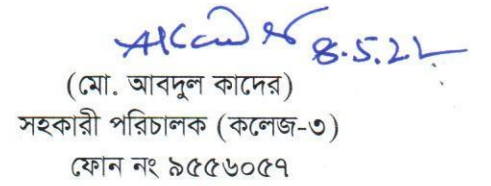 8.5.22
(মো. আবদুল কাদের)
সহকারী পরিচালক (কলেজ-৩)
ফোন নং ৯৫৫৬০৫৭